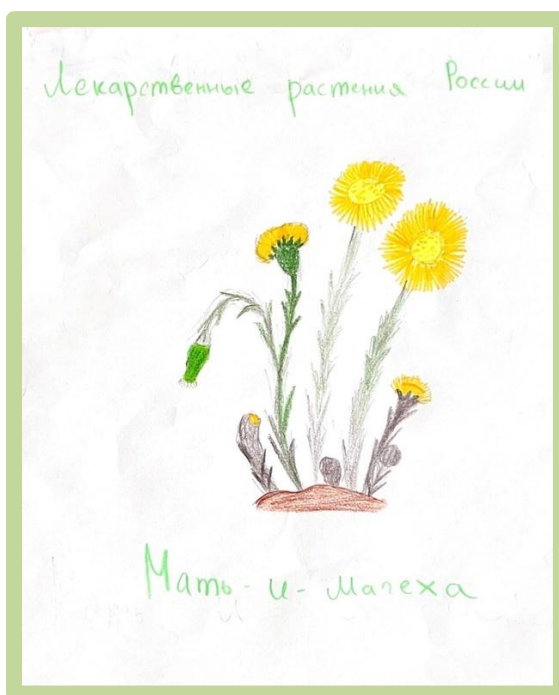 Лекарственные растения России
Мать-и-Мачеха